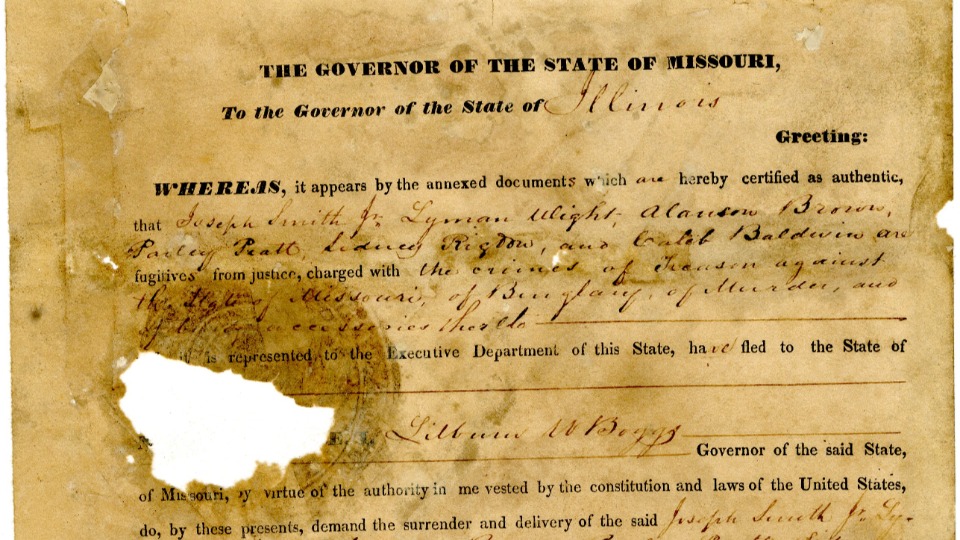 THE GOVERNOR OF THE STATE OF MISSOURI,
To the Governor of the State of Illinois
Greeting:
WHEREAS, it appears by the annexed documents which are hereby certified as authentic,
that Joseph Smith Jr. Lyman Wight, Alanson Brown,
Parley Pratt, Sidney Rigdon, and Caleb Baldwin are
fugitives from justice, charged with the crimes of Treason against
the State of Missouri, of Burglary, of Murder, and
accessories thereto
it is represented, to the Executive Department of this State, have fled to the State of
Lilburn W Boggs
Governor of the said State,
of Missouri, by virtue of the authority in me vested by the constitution and laws of the United States,
do, by these presents, demand the surrender and delivery of the said Joseph Smith Jr. Ly-